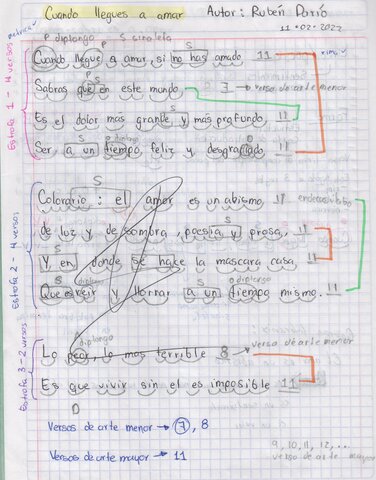 Cuando llegues a amar Autor: Rubén Darío
11 · 02 · 2022
métrica P diptongo S sinalefa
P P S
Cuando llegue a amar, si no has amado 11 rima
Estrofa 1 - 4 versos
S
Sabras que en este mundo 7 → verso de arte menor
Es el dolor mas grande y mas profundo, 11
S D diptongo D
Ser, a un tiempo, feliz y desgraciado 11
S
Colorario: el amor es un abismo 11 endecasílabo
Estrofa 2 - 4 versos
S
de luz y de sombra, poesía y prosa, 11
S S
Y en donde se hace la mascara casa 11
diptongo S D diptongo
Que es reir y llorrar a un tiempo mismo. 11
D
diptongo verso de arte menor
Lo peor, lo mas terrible 8
Estrofa 3 - 2 versos
Es que vivir sin el es imposible 11
D
Versos de arte menor → 7, 8
Versos de arte mayor → 11
9, 10, 11, 12, ...
verso de arte mayor